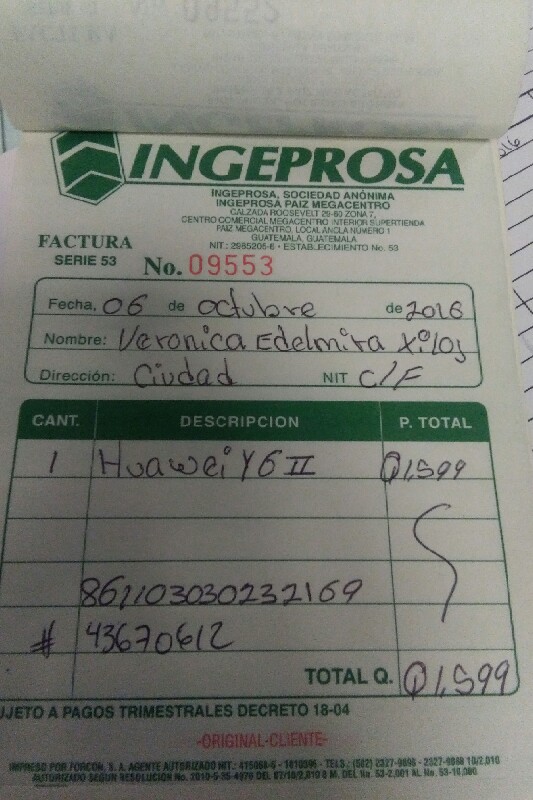 INGEPROSA
INGEPROSA, SOCIEDAD ANÓNIMA
INGEPROSA PAIZ MEGACENTRO
CALZADA ROOSEVELT 29-60 ZONA 7,
CENTRO COMERCIAL MEGACENTRO INTERIOR SUPERTIENDA
PAIZ MEGACENTRO, LOCAL ANCLA NÚMERO 1
GUATEMALA, GUATEMALA
NIT.: 2985205-6 • ESTABLECIMIENTO No. 53
FACTURA
SERIE 53 No. 09553
Fecha, 06 de octubre de 2016
Nombre: Veronica Edelmira Xiloj
Dirección: Ciudad NIT C/F
CANT. DESCRIPCION P. TOTAL
1 Huawei Y6 II Q1,599
861103030232169
# 43670612
TOTAL Q. Q1,599
UJETO A PAGOS TRIMESTRALES DECRETO 18-04
-ORIGINAL-CLIENTE-
IMPRESO POR FORCON, S. A. AGENTE AUTORIZADO NIT.: TELS.: (502) 2327-9898 - 2327-9868
AUTORIZADO SEGUN RESOLUCION No.